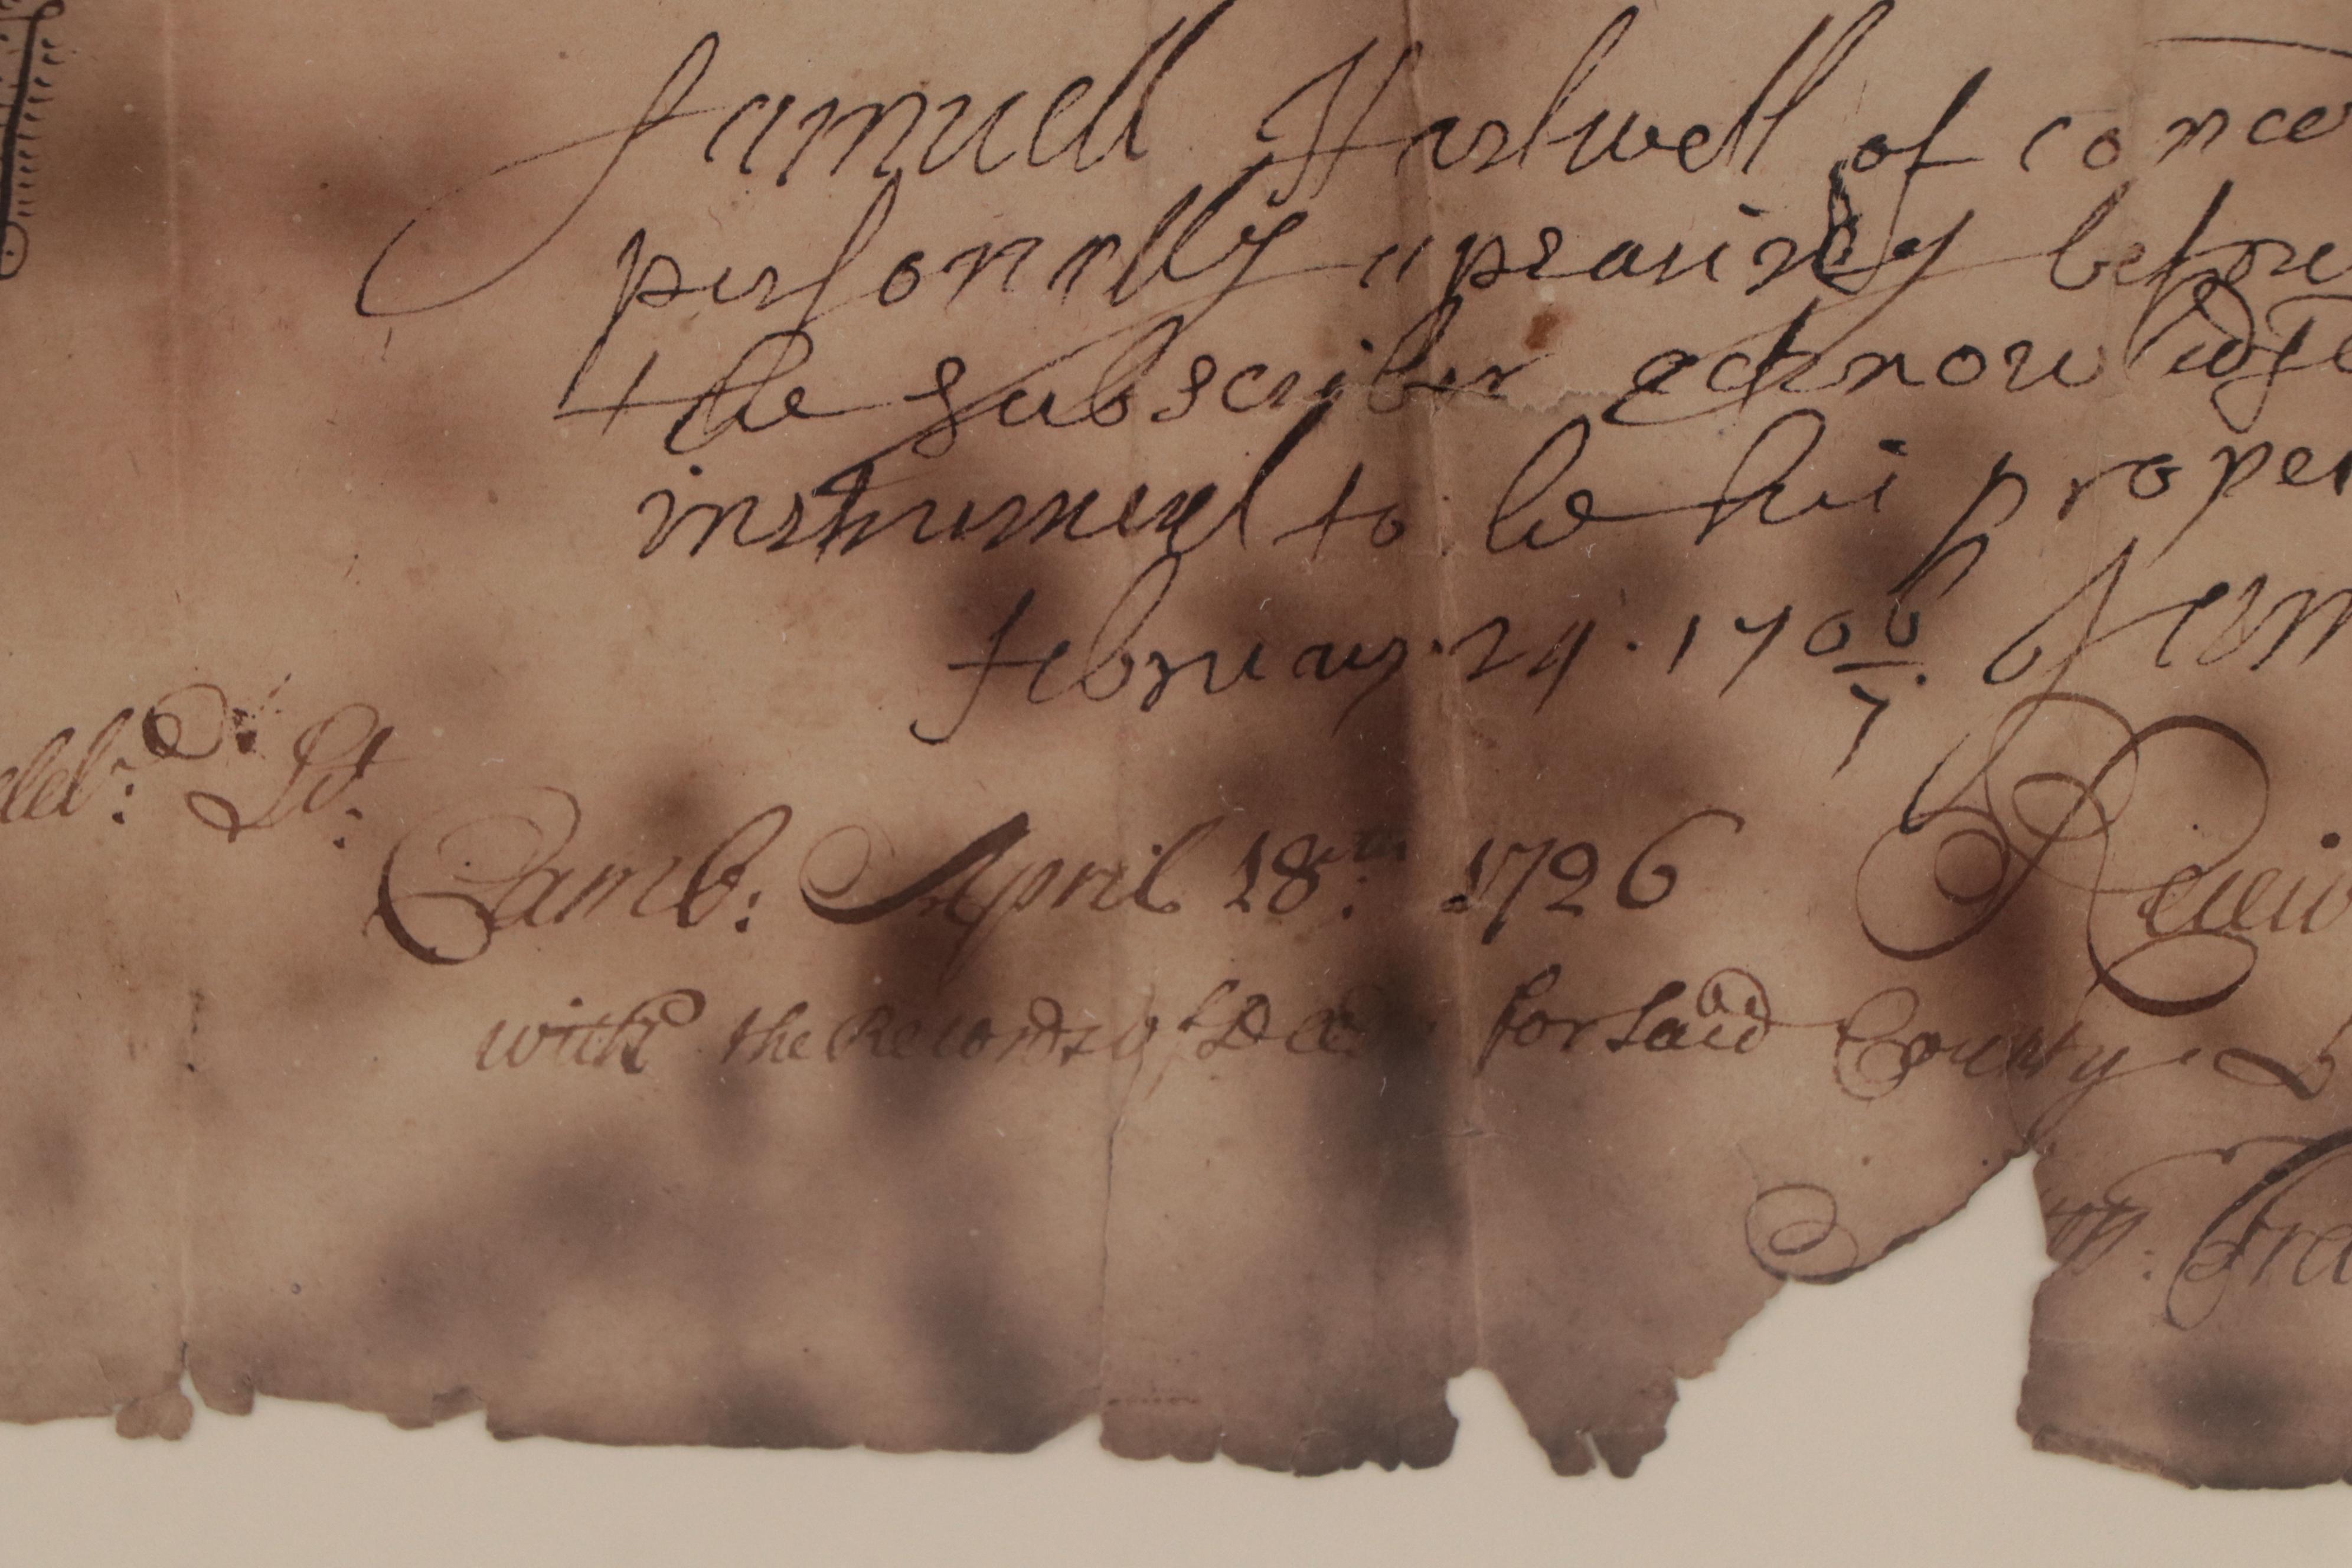 Samuell Hartwell of conco
personally apearing before
the subscriber acknowledge
instrument to be his proper
february. 24. 1706/7.
Camb: April 18th: 1726 Receiv
with the Records of Deeds for said County
Fra